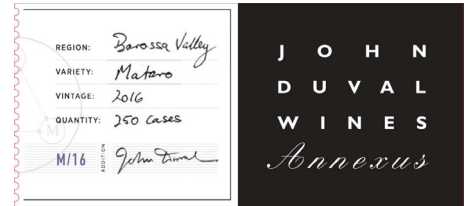 REGION: Barossa Valley
VARIETY: Mataro
VINTAGE: 2016
QUANTITY: 250 cases
M/16 ADDITION John Duval
M
JOHN
DUVAL
WINES
Annexus